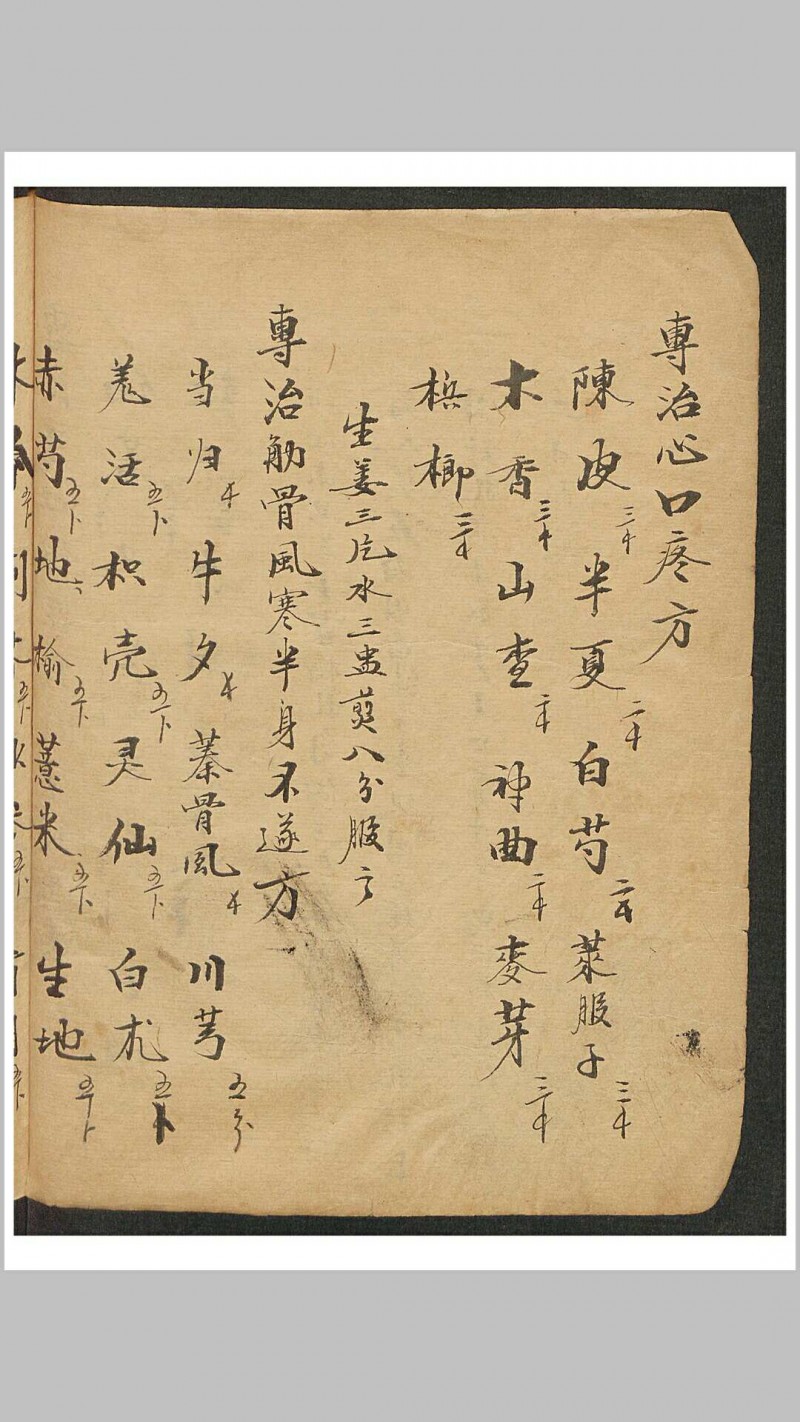 專治心口疼方
陳皮三千 半夏二千 白芍二千 萊服子三千
木香三千 山查二千 神曲二千 麥芽三千
梹榔三千
生姜三片水三盅煎八分服之
專治觔骨風寒半身不遂方
当归 牛夕 蓁骨風 川芎五分
羗活五卜 枳壳五卜 灵仙五卜 白朮五卜
赤芍五卜 地榆五卜 薏米五卜 生地五卜